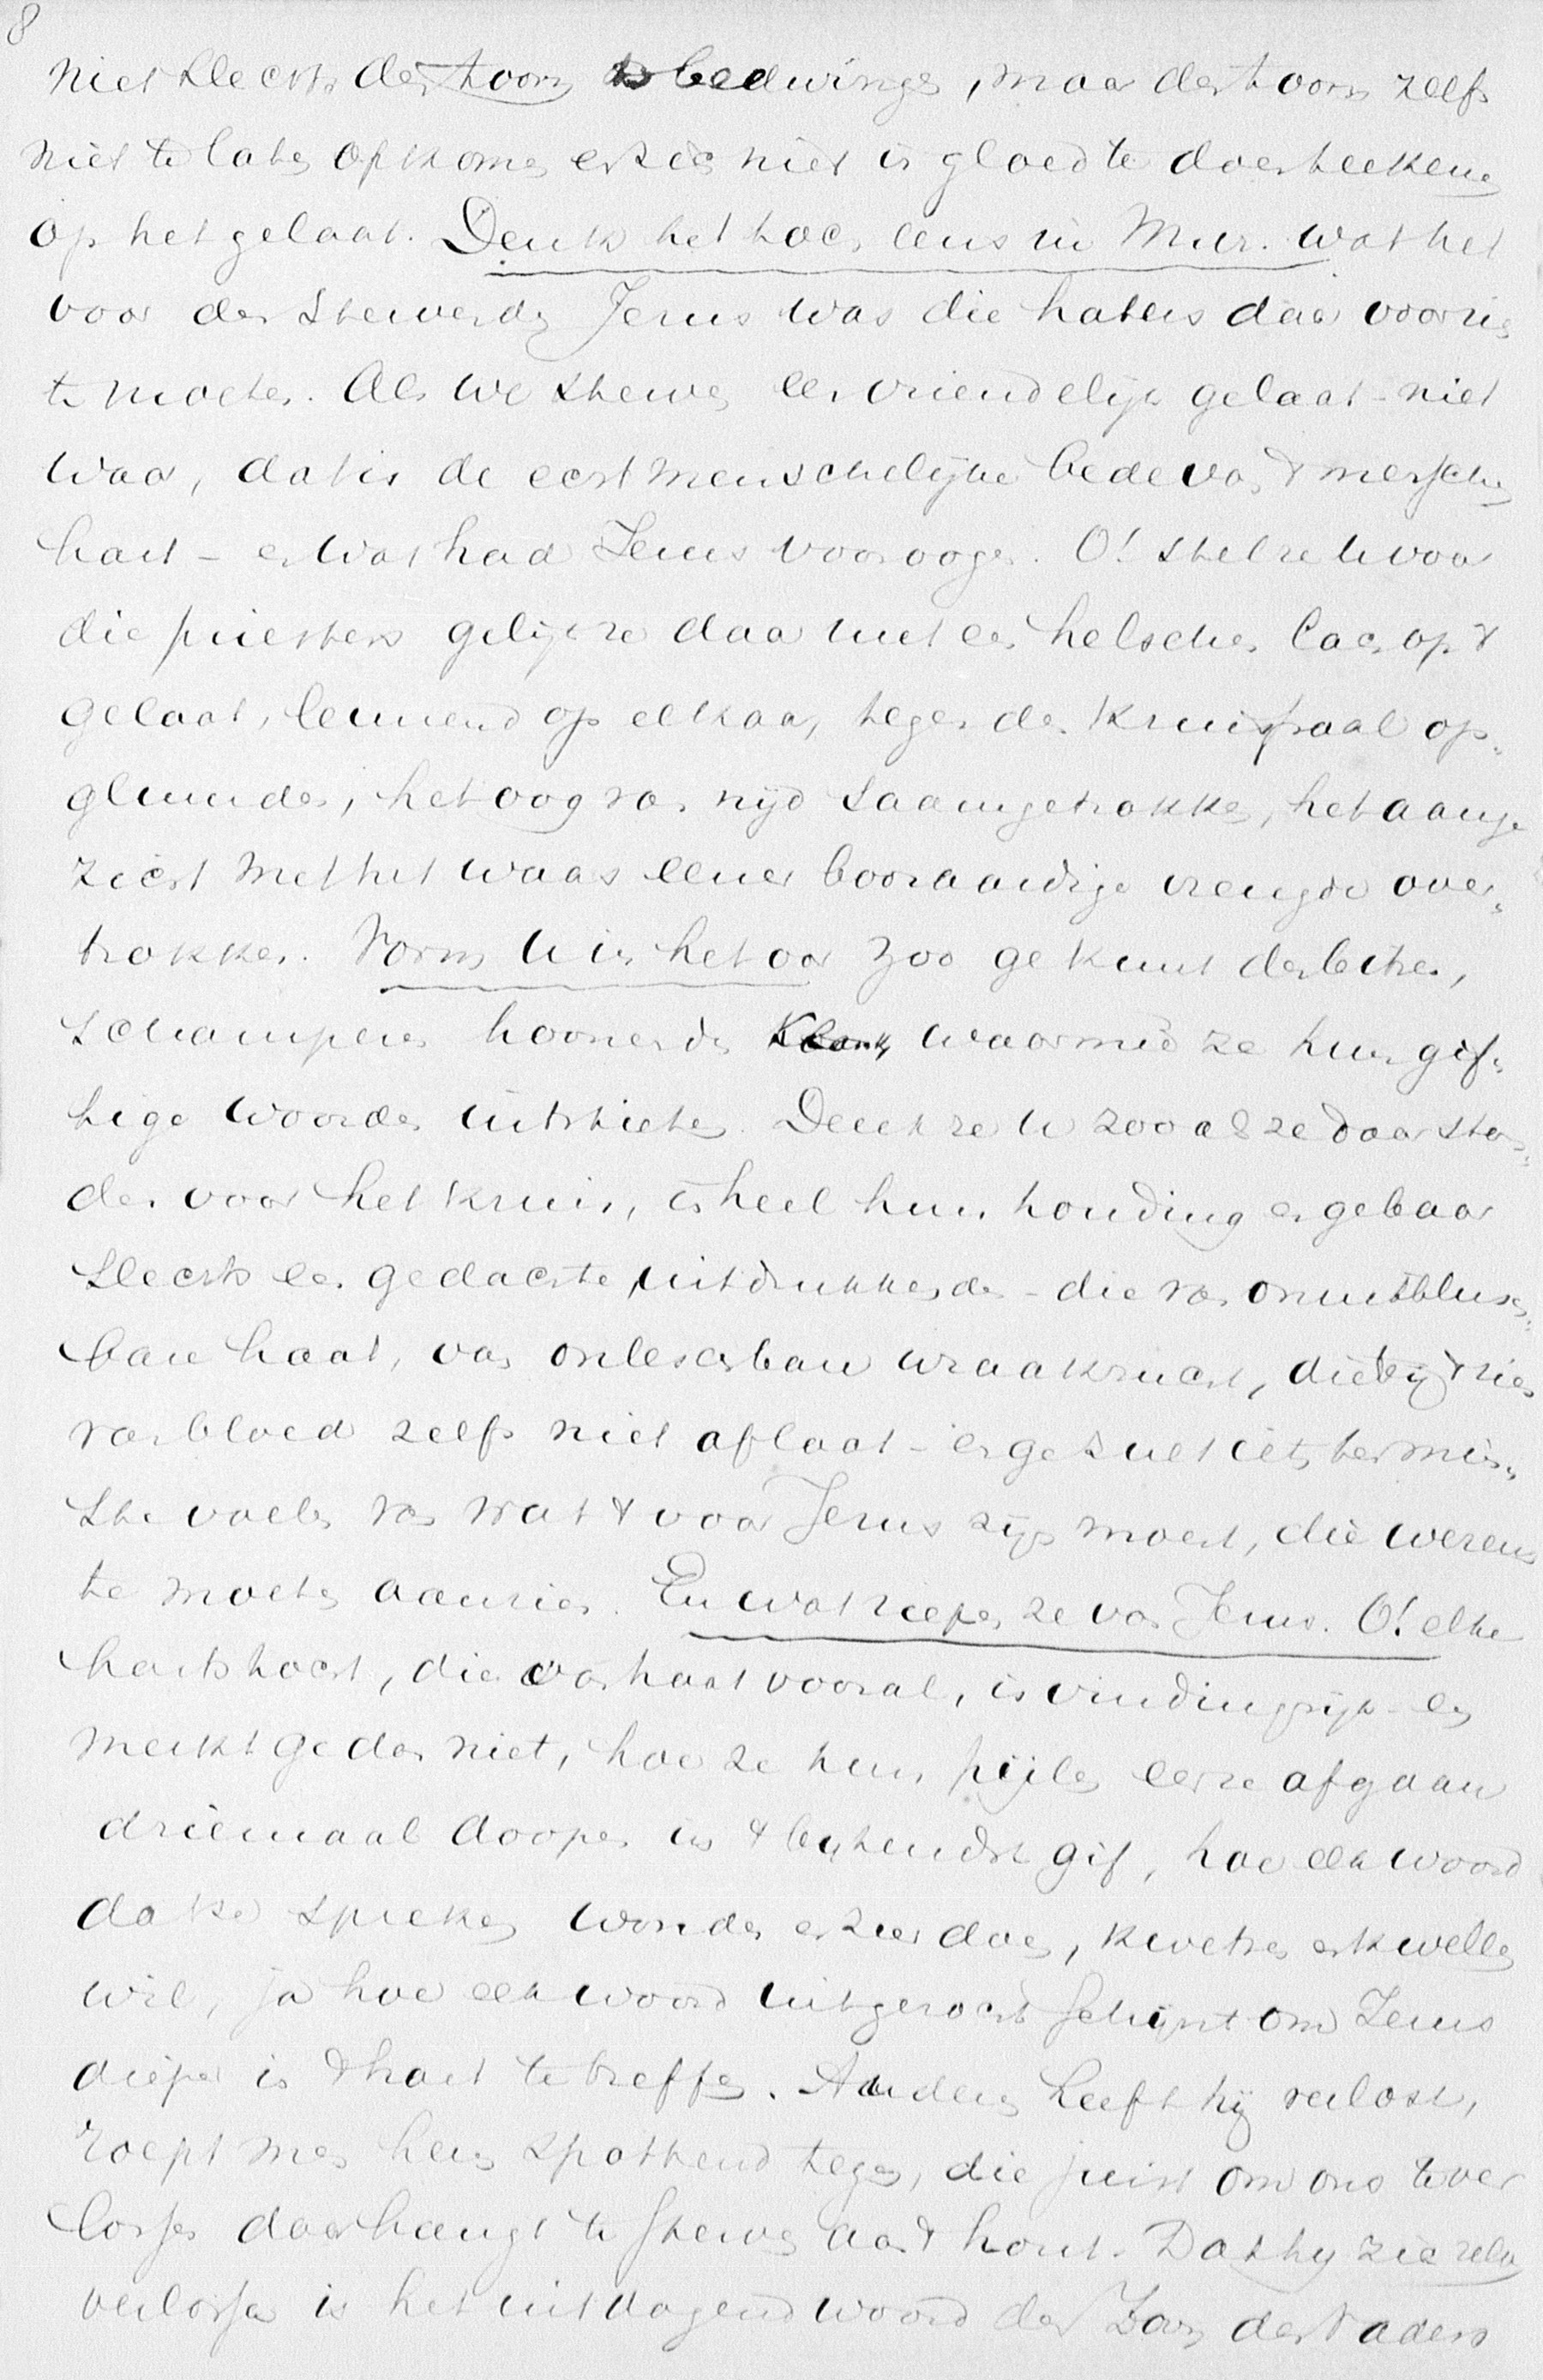 8
niet slechts den toorn te bedwingen, maar den toorn zelfs
niet te laten opkomen en zich niet in gloed te doen teekenen
op het gelaat. Denk het toch eens in M.H. wat het
voor den stervenden Jezus was die haters daar voor zich
te moeten. Als we sterven een vriendelijk gelaat - niet
waar, dat is de echt menschelijke bede van 't menschen
hart - en wat had Jezus voor oogen. O! stel ze u voor
die priesters gelijk ze daar met een helschen lach op 't
gelaat, leunend op elkaar, tegen den kruispaal op-
gluurden, het oog van nijd saamgetrokken, het aange
zicht met het waas eener boosaardige vreugde over-
trokken. Vorm u in het oor zoo ge kunt den bitsen,
schamperen hoonenden klank waarmeê ze hun gif-
tige woorden uitstieten. Denk ze u zooals ze daar ston-
den voor het kruis, in heel hun houding en gebaar
slechts een gedachte uitdrukkende - die van onuitblusch-
baren haat, van onleschbare wraakzucht, die bij 't zien
van bloed zelfs niet aflaat - en ge zult iets ten min-
ste voelen van wat 't voor Jezus zijn moest, die wezens
te moeten aanzien. En wat riepen ze van Jezus. O! elke
hartstocht, die van haat vooral, is vindingrijk - en
merkt ge dan niet, hoe ze hun pijlen eer ze afgaan
driemaal doopen in 't bijtendst gif, hoe elk woord
dat ze spreken wonden en zeer doen, kwetsen en kwellen
wil, ja hoe elk woord uitgezocht schijnt om Jezus
dieper in 't hart te treffen. Anderen heeft hij verlost,
roept men hem spottend tegen, die juist om ons te ver
lossen daar hangt te sterven aan 't hout. Dat hij zich zelv
verlosse is het uitdagend woord den Zoon des Vaders